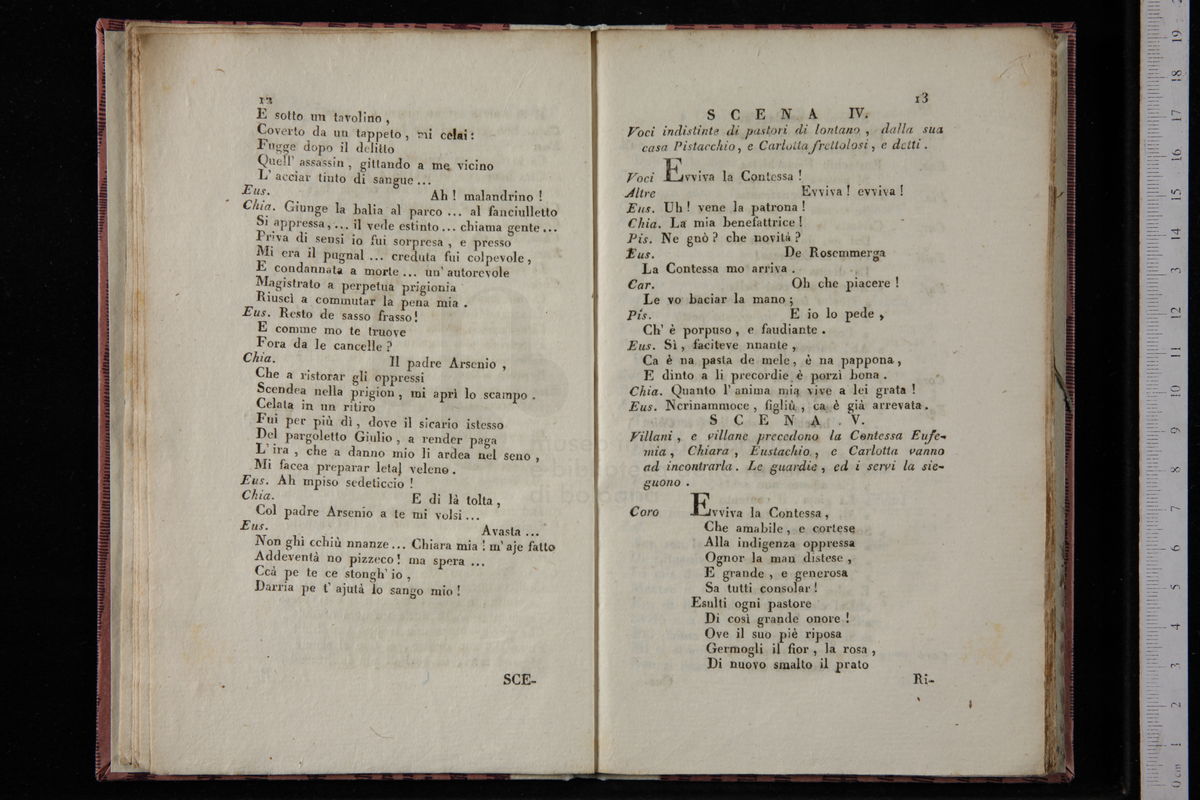 12
E sotto un tavolino ,
Coverto da un tappeto , mi celai :
Fugge dopo il delitto
Quell' assassin , gittando a me vicino
L' acciar tinto di sangue ...
Eus. Ah ! malandrino !
Chia. Giunge la balia al parco ... al fanciulletto
Si appressa, ... il vede estinto ... chiama gente ...
Priva di sensi io fui sorpresa , e presso
Mi era il pugnal ... creduta fui colpevole ,
E condannata a morte ... un' autorevole
Magistrato a perpetua prigionia
Riuscì a commutar la pena mia .
Eus. Resto de sasso frasso !
E comme mo te truove
Fora da le cancelle ?
Chia. Il padre Arsenio ,
Che a ristorar gli oppressi
Scendea nella prigion , mi aprì lo scampo .
Celata in un ritiro
Fui per più dì , dove il sicario istesso
Del pargoletto Giulio , a render paga
L' ira , che a danno mio li ardea nel seno ,
Mi facea preparar letal veleno .
Eus. Ah mpiso sedeticcio !
Chia. E di là tolta ,
Col padre Arsenio a te mi volsi ...
Eus. Avasta ...
Non ghì cchiù nnanze ... Chiara mia ! m' aje fatto
Addeventà no pizzeco ! ma spera ...
Ccà pe te ce stongh' io ,
Darria pe t' ajutà lo sango mio !
SCE-
13
SCENA IV.
Voci indistinte di pastori di lontano , dalla sua
casa Pistacchio , e Carlotta frettolosi , e detti .
Voci Evviva la Contessa !
Altre Evviva ! evviva !
Eus. Uh ! vene la patrona !
Chia. La mia benefattrice !
Pis. Ne gnò ? che novità ?
Eus. De Rosemmerga
La Contessa mo arriva .
Car. Oh che piacere !
Le vo baciar la mano ;
Pis. E io lo pede ,
Ch' è porpuso , e faudiante .
Eus. Sì , faciteve nnante ,
Ca è na pasta de mele , è na pappona ,
E dinto a li precordie è porzì bona .
Chia. Quanto l' anima mia vive a lei grata !
Eus. Ncrinammoce , figliù , ca è già arrevata .
SCENA V.
Villani , e villane precedono la Contessa Eufe-
mia , Chiara , Eustachio , e Carlotta vanno
ad incontrarla . Le guardie , ed i servi la sie-
guono .
Coro Evviva la Contessa ,
Che amabile , e cortese
Alla indigenza oppressa
Ognor la man distese ,
E grande , e generosa
Sa tutti consolar !
Esulti ogni pastore
Di così grande onore !
Ove il suo piè riposa
Germogli il fior , la rosa ,
Di nuovo smalto il prato
Ri-